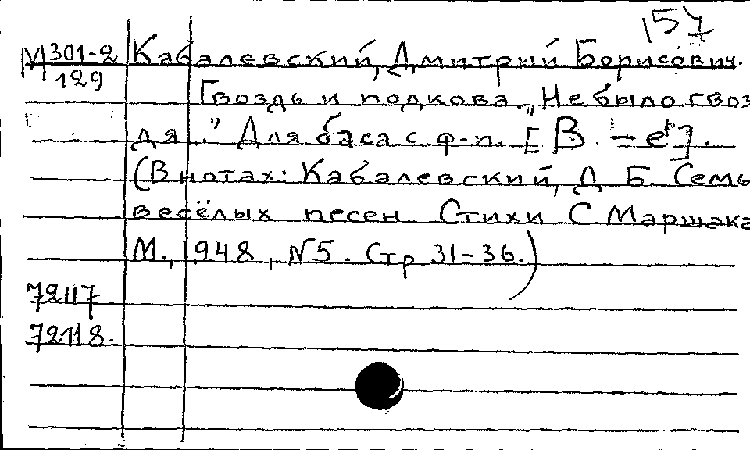 157
М 301-2 Кабалевский, Дмитрий Борисович.
129
Гвоздь и подкова. „Не было гвоз
дя..." Для баса с ф-п. [B. – e¹].
(В нотах: Кабалевский, Д. Б. Семь
весёлых песен. Стихи С. Маршака
М., 1948, №5. Стр. 31-36.)
72117
72118.